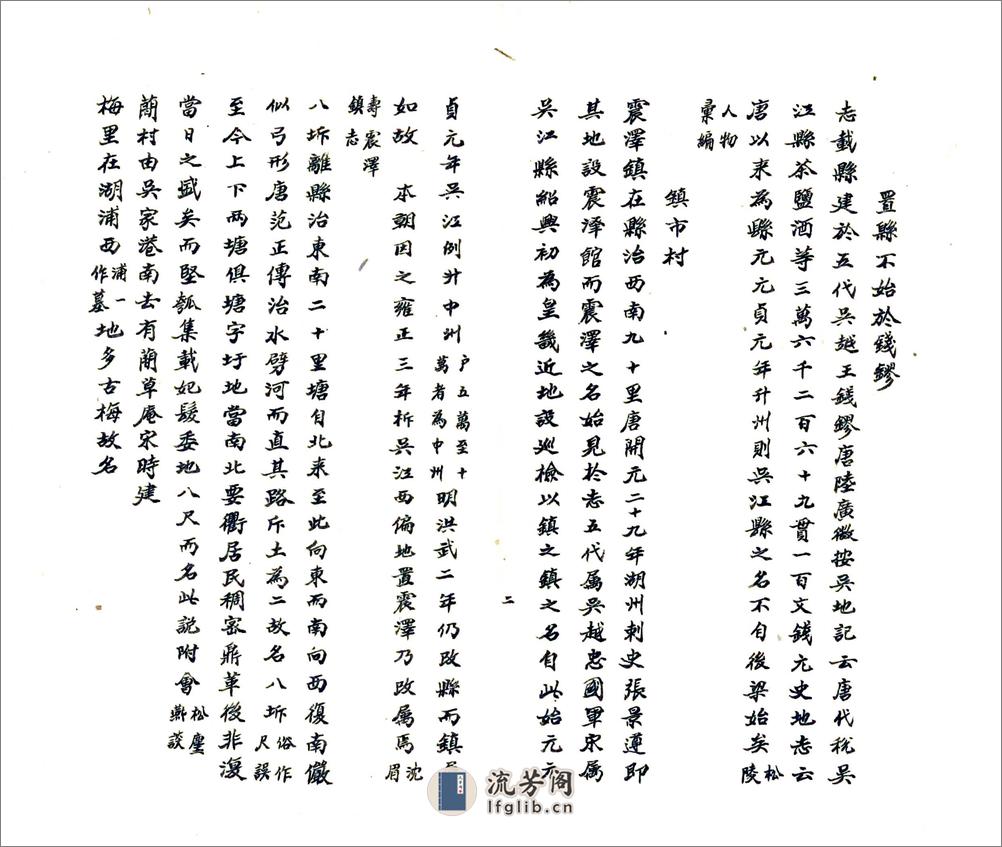 置縣不始於錢鏐
志載縣建於五代吳越王錢鏐唐陸廣微按吳地記云唐代稅吳
江縣茶鹽酒等三萬六千二百六十九貫一百文錢元史地志云
唐以來為縣元元貞元年升州則吳江縣之名不自後梁始矣松陵
人物彙編
鎮市村
震澤鎮在縣治西南九十里唐開元二十九年湖州刺史張景遵即
其地設震澤館而震澤之名始見於志五代屬吳越忠國軍宋屬
吳江縣紹興初為皇畿近地設巡檢以鎮之鎮之名自此始元元
二
貞元年吳江例升中州戶五萬至十萬者為中州明洪武二年仍改縣而鎮
如故 本朝因之雍正三年柝吳江西偏地置震澤乃改屬焉沈眉
壽震澤鎮志
八坼離縣治東南二十里塘自北來至此向東而南向西復南儼
似弓形唐范正傳治水劈河而直其路斥土為二故名八坼俗作尺誤
至今上下兩塘俱塘字圩地當南北要衢居民稠密鼎革後非復
當日之盛矣而堅瓠集載妃髮委地八尺而名此說附會松塵燕談
蘭村由吳家港南去有蘭草庵宋時建
梅里在湖浦西浦一作墓地多古梅故名
流芳阁
lfglib.cn